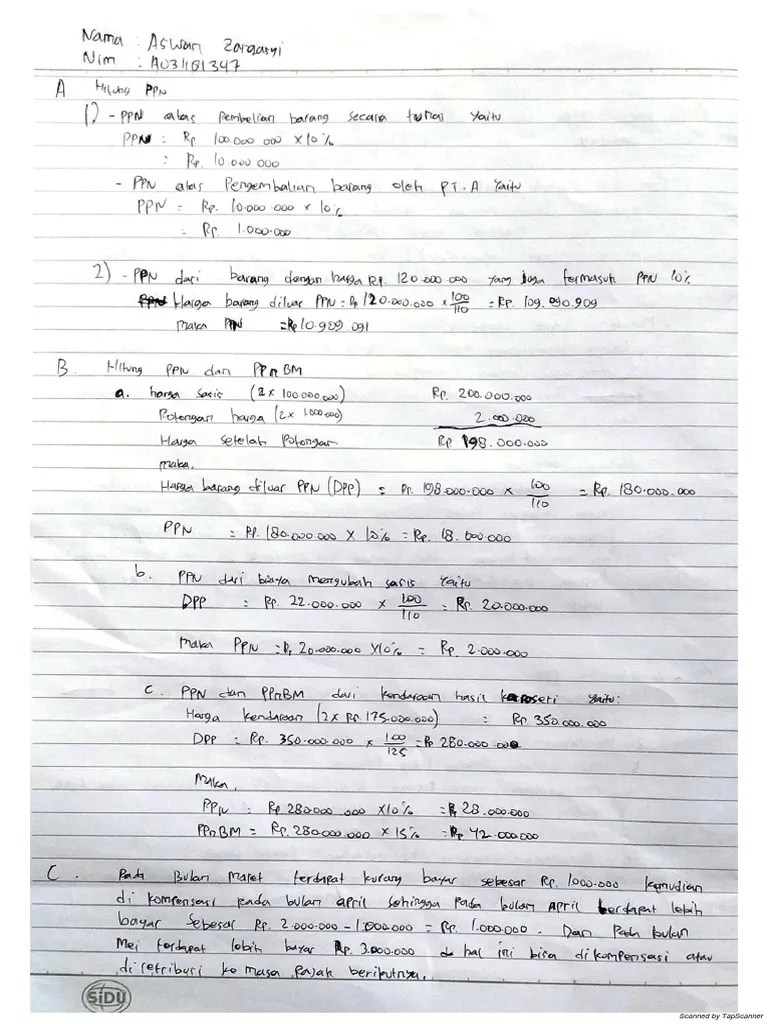 Nama : Aswan Zargasyi
Nim : A031181347
A Hitung PPN
1) - PPN atas Pembelian barang secara tunai yaitu
PPN : Rp 100.000 000 x 10%
: Rp. 10.000 000
- PPN atas Pengembalian barang oleh PT. A yaitu
PPN = Rp. 10.000 000 x 10%
= Rp. 1.000.000
2) - PPN dari barang dengan harga Rp. 120.000.000 yang juga termasuk PPN 10%
Harga barang diluar PPN = Rp 120.000.000 x 100/110 = Rp. 109.090.909
maka PPN = Rp 10.909 091
B. Hitung PPN dan PPnBM
a. harga sasis (2 x 100.000.000) Rp. 200.000.000
Potongan harga (2 x 1000.000) 2.000.000
Harga setelah Potongan Rp 198.000.000
maka,
Harga barang diluar PPN (DPP) = Rp. 198.000.000 x 100/110 = Rp. 180.000.000
PPN = Rp. 180.000.000 x 10% = Rp. 18.000.000
b. PPN dari biaya mengubah sasis yaitu
DPP = Rp. 22.000.000 x 100/110 = Rp. 20.000.000
maka PPN = Rp 20.000.000 x 10% = Rp. 2.000.000
c. PPN dan PPnBM dari kendaraan hasil karoseri yaitu:
Harga kendaraan (2 x Rp. 175.000.000) = Rp 350.000.000
DPP = Rp. 350.000.000 x 100/125 = Rp 280.000.000
Maka,
PPN : Rp 280.000 000 x 10% = Rp 28.000.000
PPnBM = Rp. 280.000.000 x 15% = Rp 42.000000
C. Pada Bulan Maret terdapat kurang bayar sebesar Rp. 1000.000 kemudian
di kompensasi pada bulan april sehingga pada bulan April terdapat lebih
bayar sebesar Rp. 2.000.000 - 1.000.000 = Rp. 1.000.000. Dan Pada bulan
Mei terdapat lebih bayar Rp. 3.000.000 hal ini bisa di kompensasi atau
di retribusi ke masa pajak berikutnya.
SiDU
Scanned by TapScanner